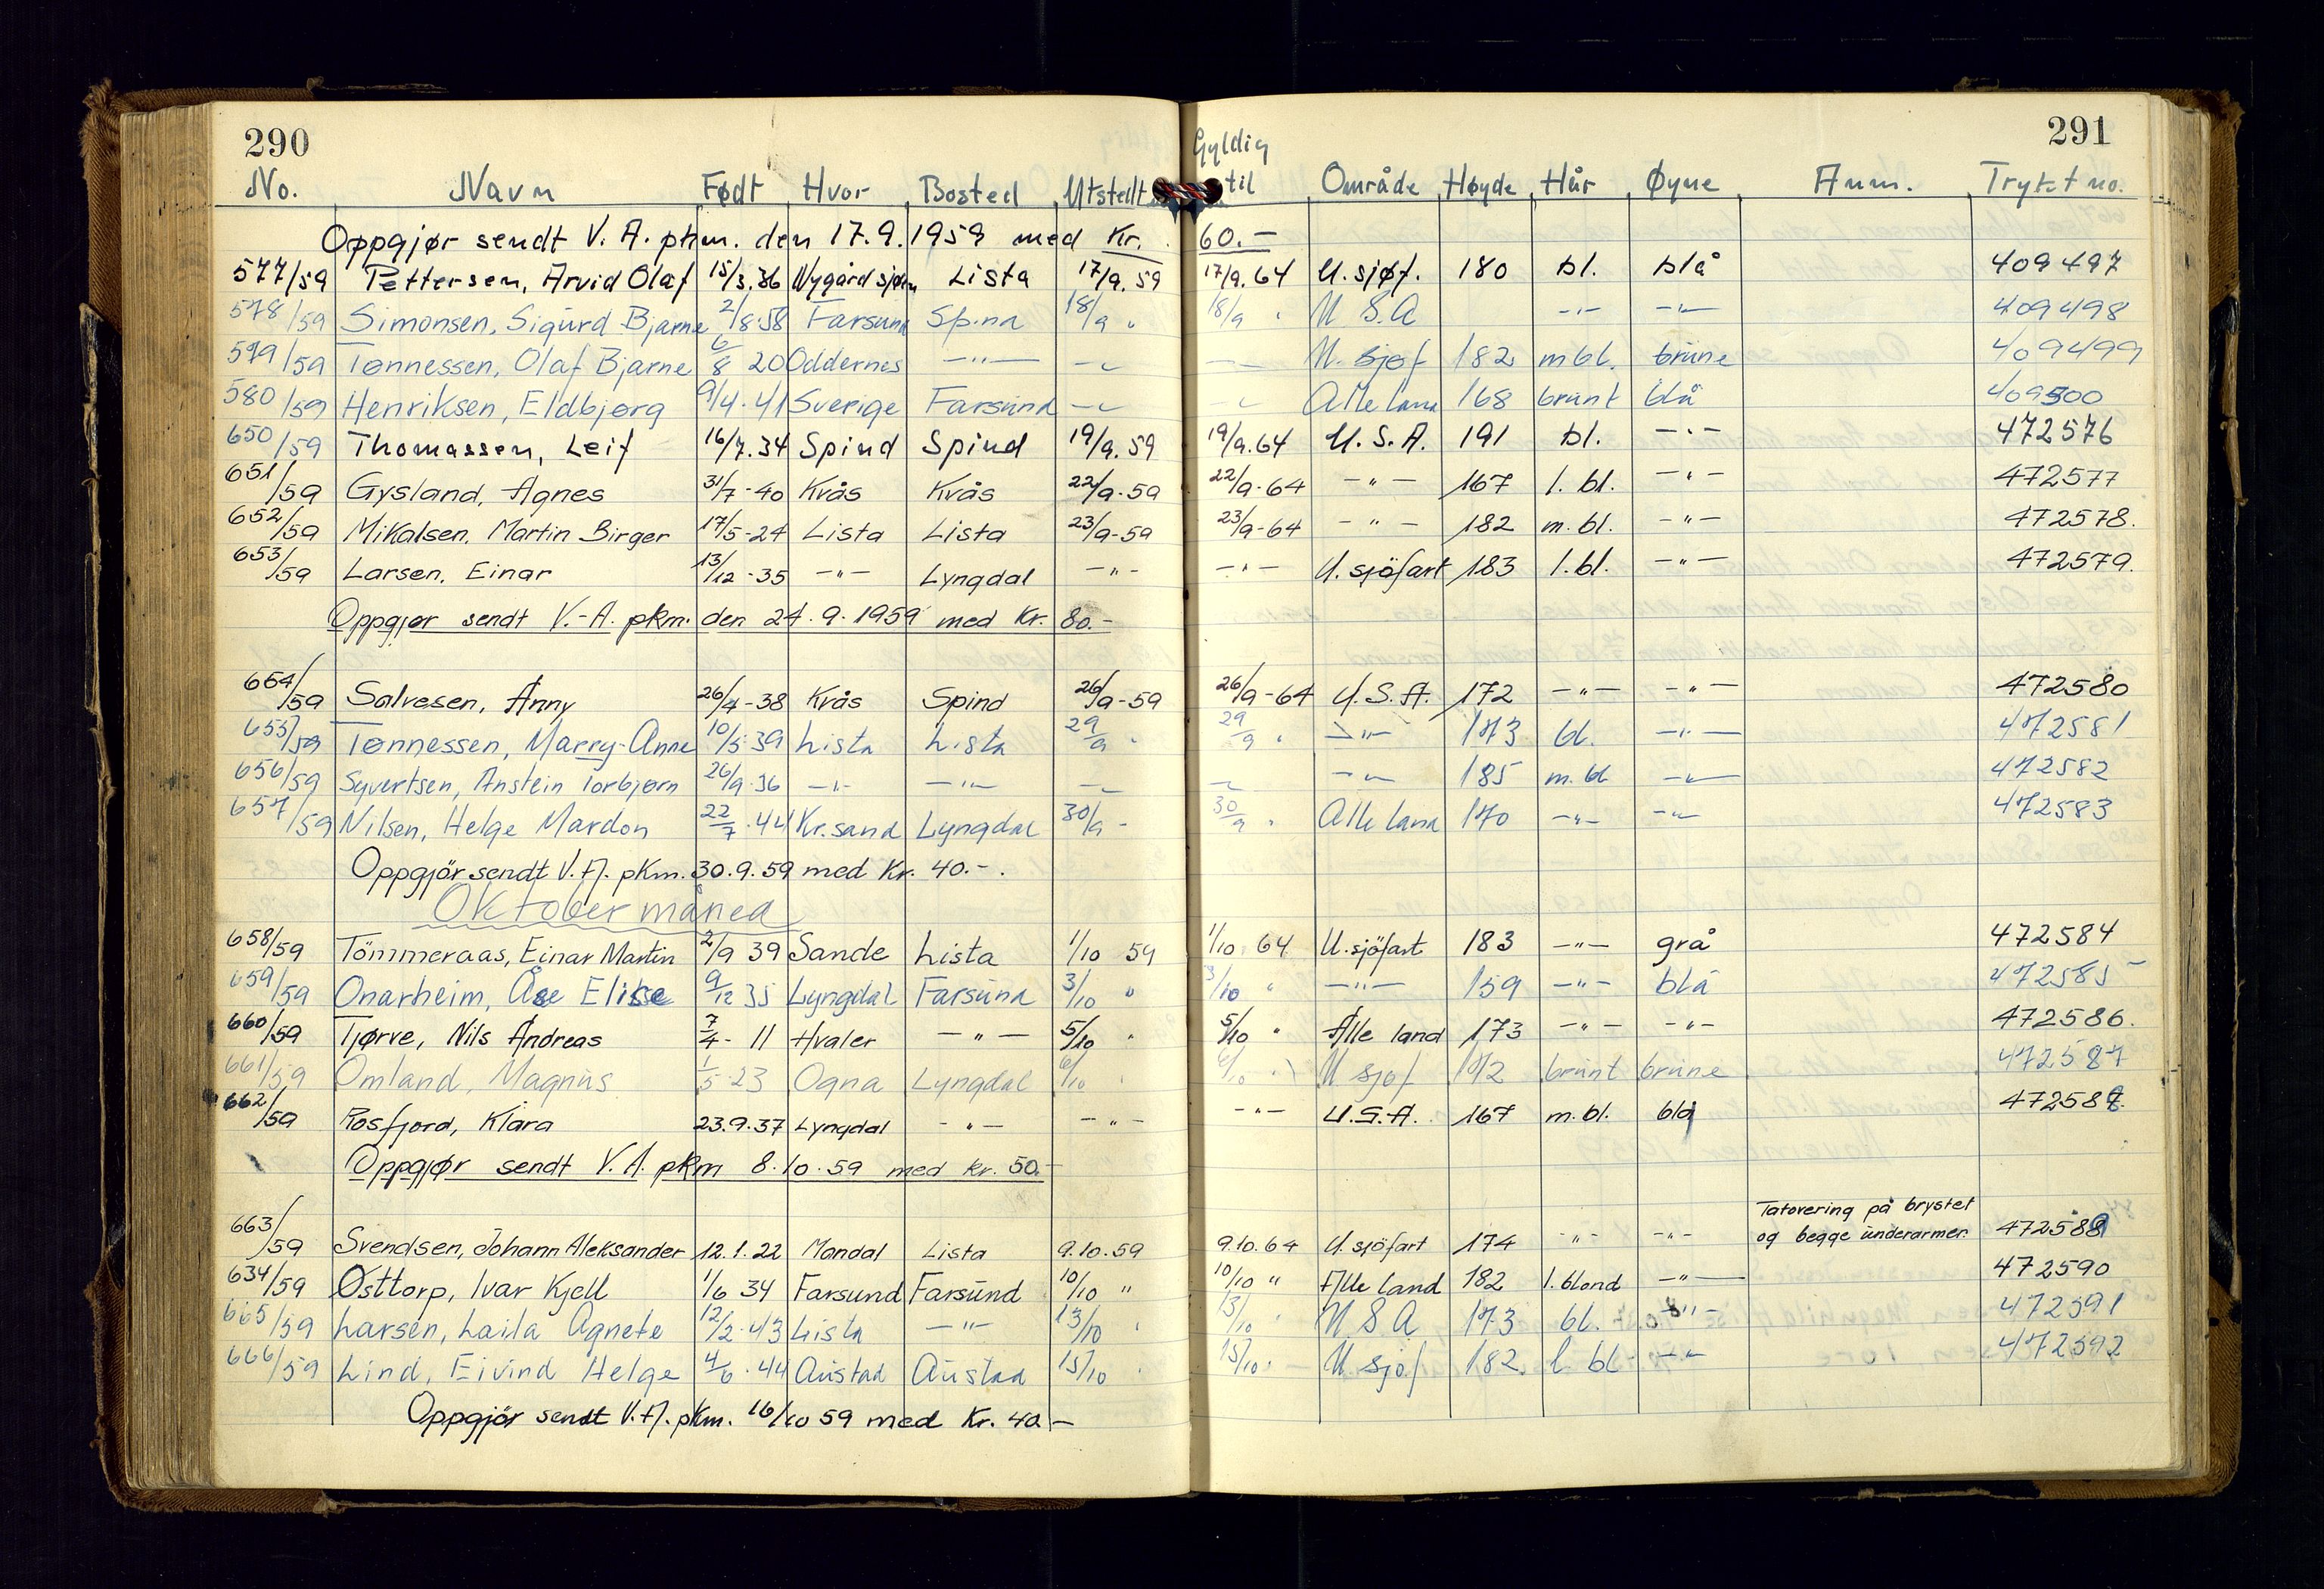 290
291
No. Navn Født Hvor Bosted Utstedt Gyldig til Område Høyde Hår Øyne Anm. Trykt no.
Oppgjør sendt V. A. pkm. den 17.9.1959 med Kr. 60.—
577/59 Pettersen, Arvid Olaf 15/3.36 Nygårdsjøen Lista 17/9.59 17/9.64 U. sjøf. 180 bl. blå 409497
578/59 Simonsen, Sigurd Bjarne 2/8.58 Farsund Spind 18/9 " 18/9 " U S.A —"— —"— 409498
579/59 Tønnessen, Olaf Bjarne 6/8 20 Oddernes —"— —"— —"— U. sjøf 182 m bl. brune 409499
580/59 Henriksen, Eldbjørg 9/4.41 Sverige Farsund —"— —"— Alle land 168 brunt blå 409500
650/59 Thomassen, Leif 16/7.34 Spind Spind 19/9.59 19/9.64 U.S.A. 191 bl. —"— 472576
651/59 Gysland, Agnes 31/7-40 Kvås Kvås 22/9-59 22/9-64 —"— 167 l. bl. —"— 472577
652/59 Mikalsen, Martin Birger 17/5-24 Lista Lista 23/9-59 23/9-64 —"— 182 m. bl. —"— 472578.
653/59 Larsen, Einar 13/12-35 —"— Lyngdal —"— —"— U. sjöfart 183 l. bl. —"— 472579.
Oppgjør sendt V.-A. pkm. den 24.9.1959 med Kr. 80.-
654/59 Salvesen, Anny 26/4-38 Kvås Spind 26/9-59 26/9-64 U.S.A. 172 —"— —"— 472580
655/59 Tønnessen, Marry-Anne 10/5.39 Lista Lista 29/9 " 29/9 " —"— 173 bl. —"— 472581
656/59 Syvertsen, Anstein Torbjørn 26/9.36 —"— —"— —"— —"— —"— 185 m. bl —"— 472582
657/59 Nilsen, Helge Mardon 22/7.44 Kr.sand Lyngdal 30/9 - 30/9 " Alle land 170 —"— —"— 472583
Oppgjör sendt V.A. pkm. 30.9.59 med Kr. 40.-.
Oktober måned
658/59 Tömmeraas, Einar Martin 2/9 39 Sande Lista 1/10 59 1/10 64 U. sjöfart 183 —"— grå 472584
659/59 Onarheim, Åse Elise 9/12 35 Lyngdal Farsund 3/10 " 3/10 " —"— 159 —"— blå 472585
660/59 Tjørve, Nils Andreas 7/4- 11 Hvaler —"— 5/10 " 5/10 " Alle land 173 —"— —"— 472586.
661/59 Omland, Magnus 1/5.23 Ogna Lyngdal 6/10 " 6/10 " U sjøf 172 brunt brune 472587
662/59 Rosfjord, Klara 23.9.37 Lyngdal —"— —"— —"— U.S.A. 167 m. bl. blå 472588.
Oppgjør sendt V.A. pkm 8.10.59 med kr. 50.-
Tatovering på brystet
663/59 Svendsen, Johann Aleksander 12.1.22 Mandal Lista 9.10.59 9.10.64 U. sjöfart 174 —"— —"— og begge underarmer. 472589
634/59 Østtorp, Ivar Kjell 1/6 34 Farsund Farsund 10/10 " 10/10 " Alle land 182 l. blond —"— 472590
665/59 Larsen, Laila Agnete 12/2.43 Lista —"— 13/10 " 13/10 " U S A 173 bl. —"— 472591
666/59 Lind, Eivind Helge 4/6.44 Austad Austad 15/10 " 15/10 " U sjøf 182. l. bl —"— 472592
Oppgjör sendt V.A. pkm. 16/10 59 med Kr. 40.—